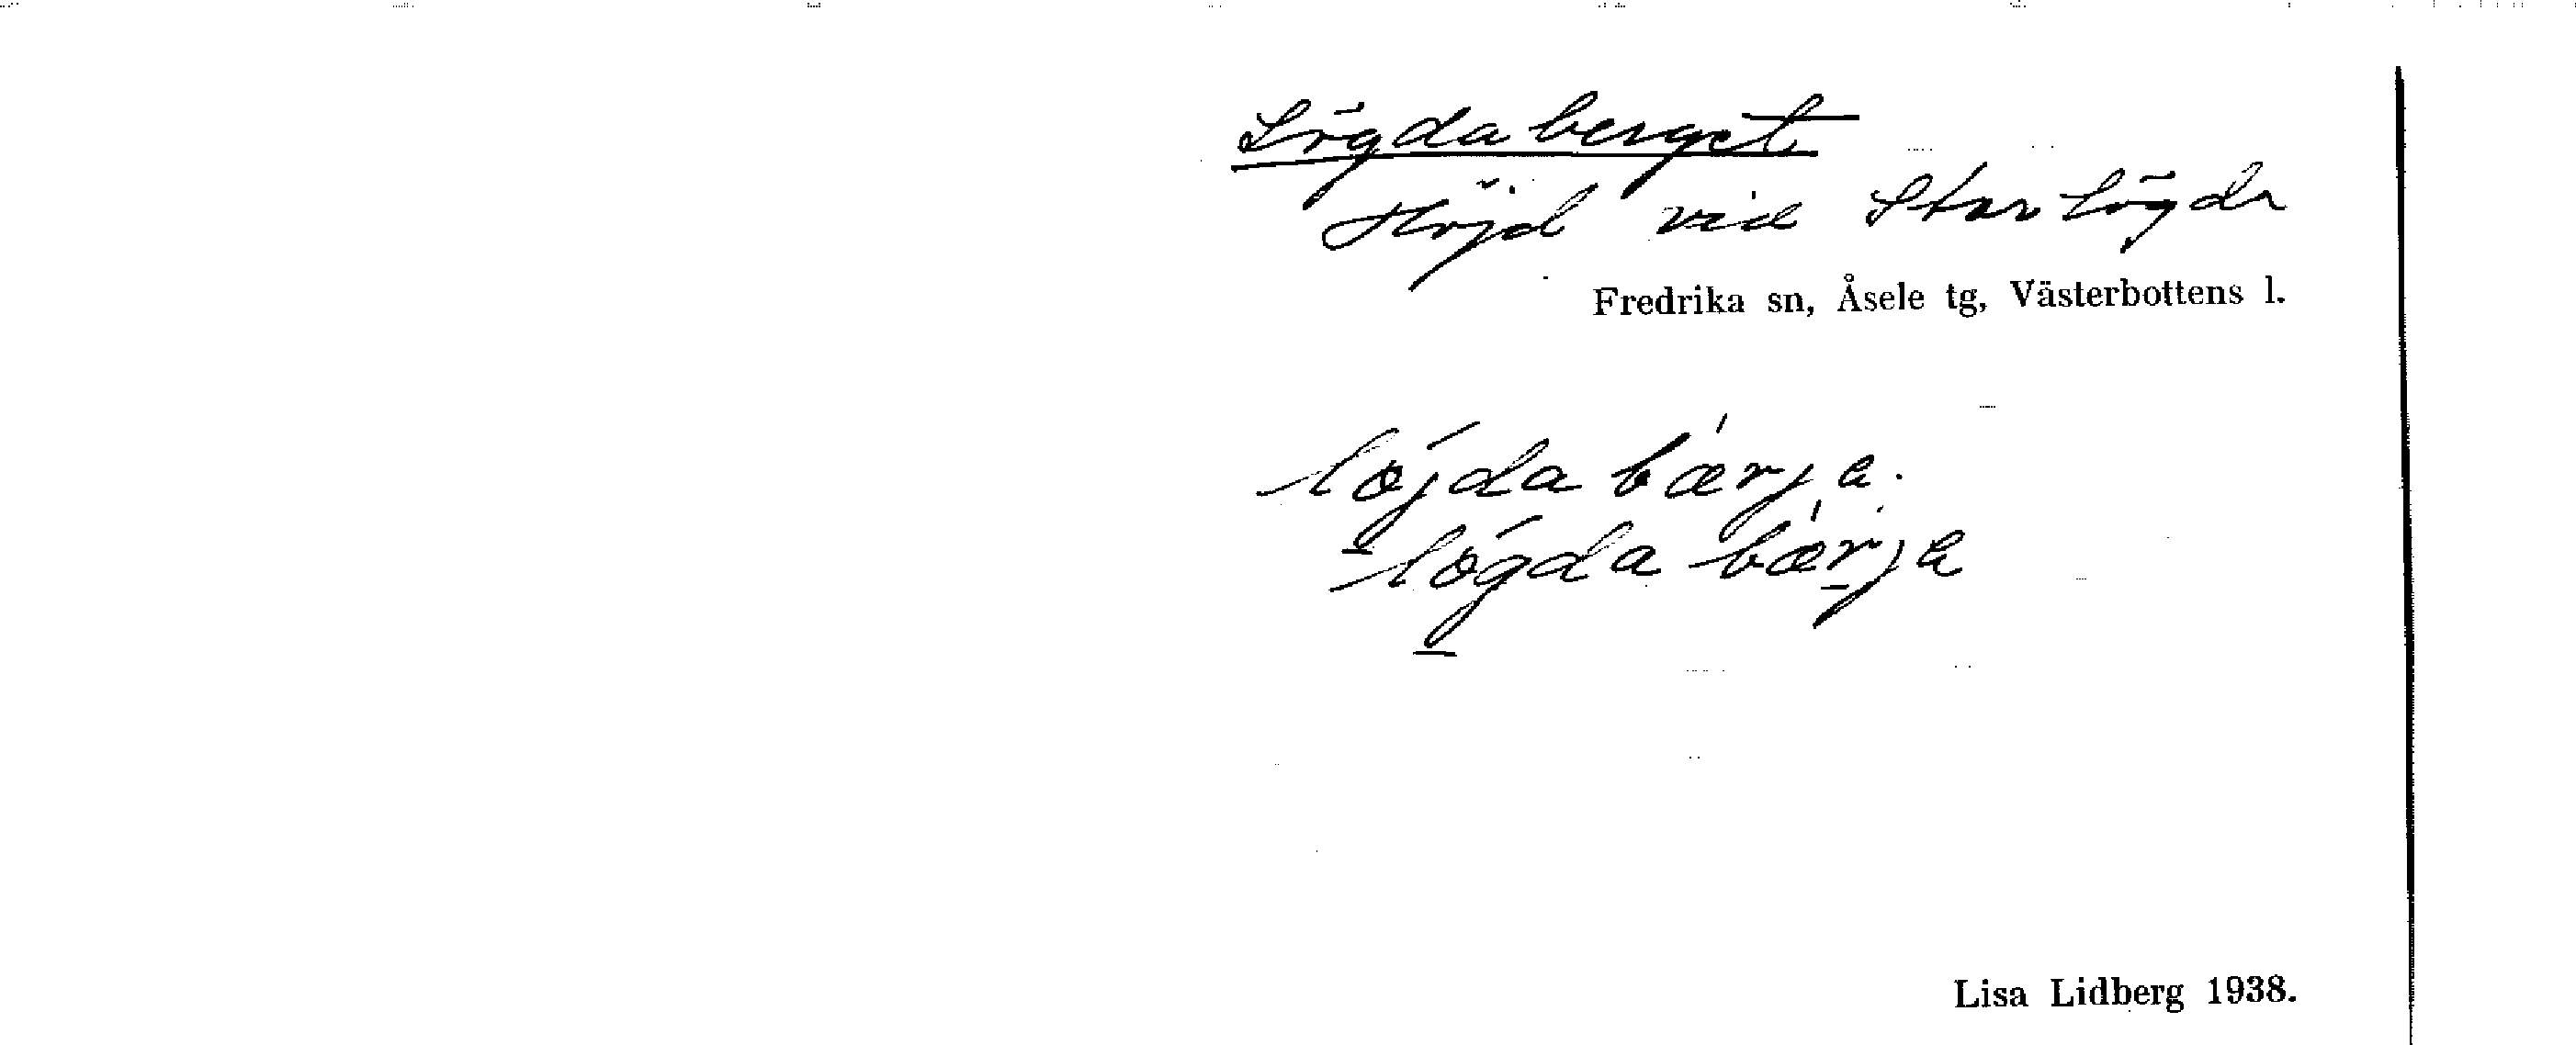 Lögdaberget
Höjd vid Storlögda
Fredrika sn, Åsele tg, Västerbottens l.
löjda bærja.
lögda bærja
Lisa Lidberg 1938.